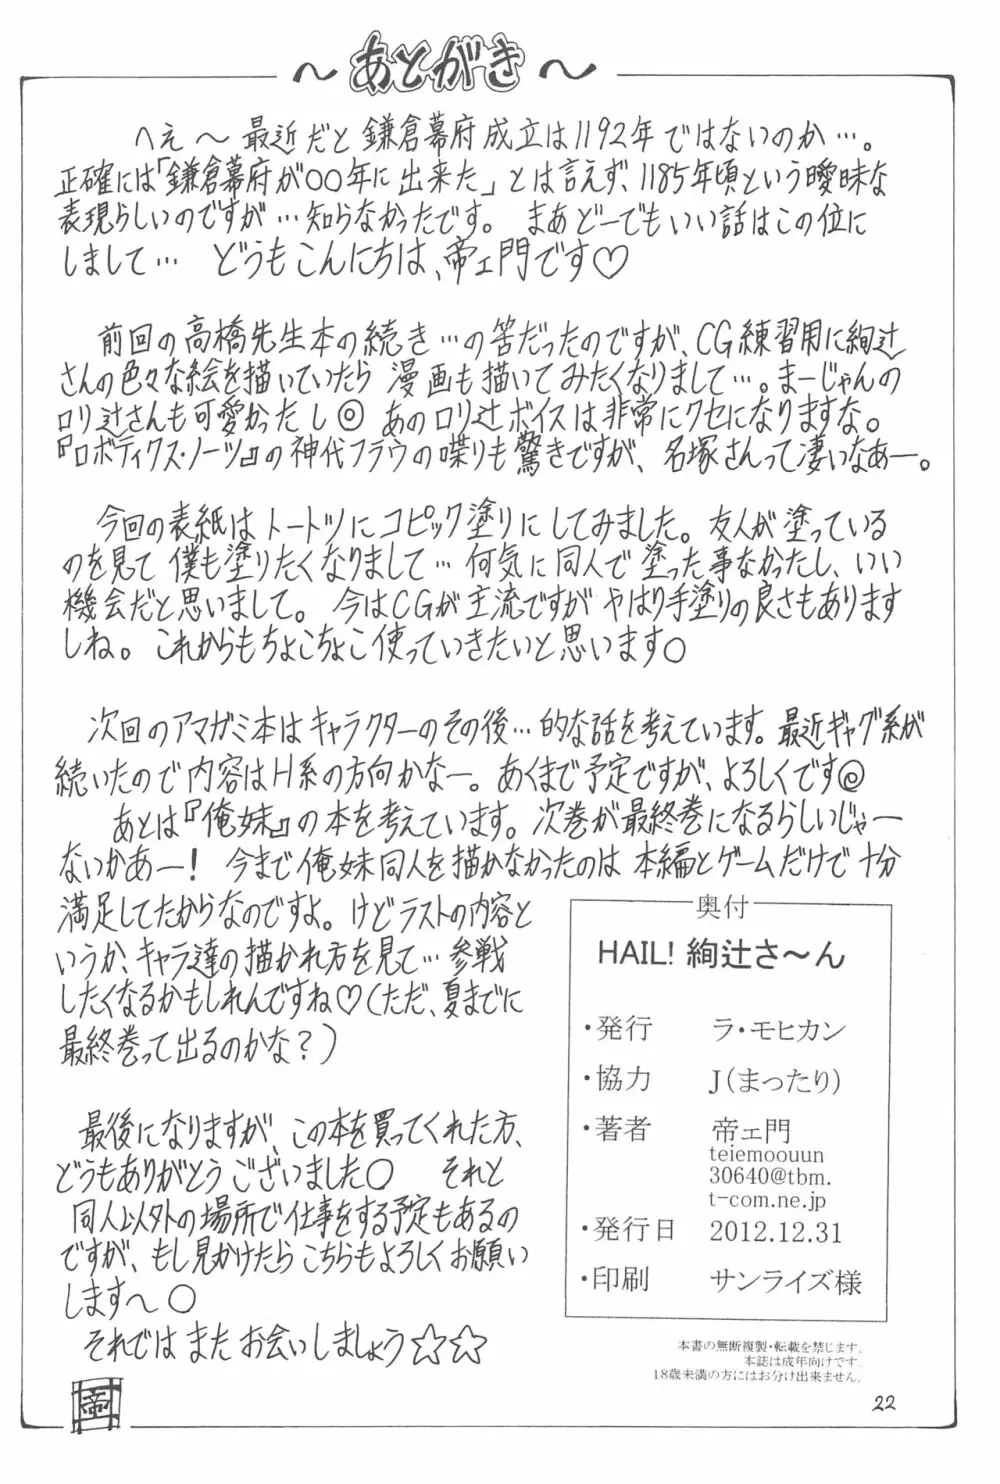 ～あとがき～
へぇ～最近だと鎌倉幕府成立は1192年ではないのか…。
正確には「鎌倉幕府が○○年に出来た」とは言えず、1185年頃という曖昧な
表現らしいのですが…知らなかったです。 まあどーでもいい話はこの位に
しまして… どうもこんにちは、帝ェ門です♡
前回の高橋先生本の続き…の筈だったのですが、CG練習用に絢辻
さんの色々な絵を描いていたら 漫画も描いてみたくなりまして…。まーじゃんの
ロリ辻さんも可愛かったし◎ あのロリ辻ボイスは非常にクセになりますな。
『ロボティクス・ノーツ』の神代フラウの喋りも驚きですが、名塚さんって凄いなあー。
今回の表紙はトートツにコピック塗りにしてみました。友人が塗っている
のを見て僕も塗りたくなりまして… 何気に同人で塗った事なかったし、いい
機会だと思いまして。 今はCGが主流ですが やはり手塗りの良さもあります
しね。これからもちょこちょこ使っていきたいと思います○
次回のアマガミ本はキャラクターのその後…的な話を考えています。最近ギャグ系が
続いたので内容はH系の方向かなー。あくまで予定ですが、よろしくです@
あとは『俺妹』の本を考えています。次巻が最終巻になるらしいじゃー
ないかあー! 今まで俺妹同人を描かなかったのは 本編とゲームだけで十分
満足してたからなのですよ。けどラストの内容と
いうか、キャラ達の描かれ方を見て… 参戦
したくなるかもしれんですね♡(ただ、夏までに
最終巻って出るのかな?)
最後になりますが、この本を買ってくれた方、
どうもありがとうございました○ それと
同人以外の場所で仕事をする予定もあるの
ですが、もし見かけたらこちらもよろしくお願い
します〜○
それでは また お会いしましょう☆☆
帝
奥付
HAIL! 絢辻さ～ん
・発行 ラ・モヒカン
・協力 J(まったり)
・著者 帝ェ門
teiemoouun
30640@tbm.
t-com.ne.jp
・発行日 2012.12.31
・印刷 サンライズ様
本書の無断複製・転載を禁じます。
本誌は成年向けです。
18歳未満の方にはお分け出来ません。
22